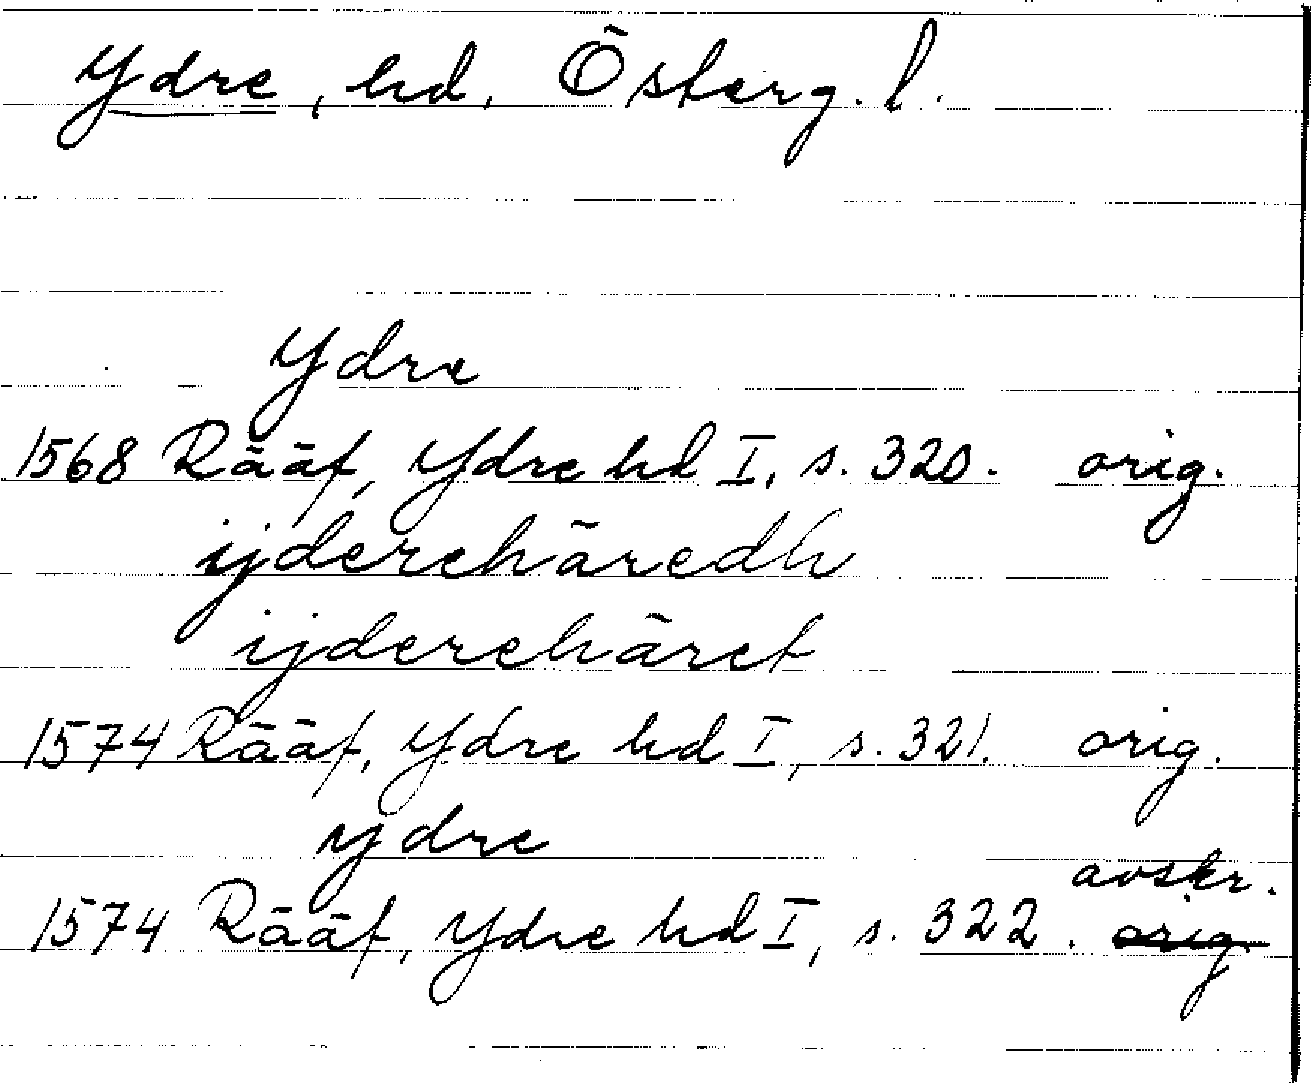 Ydre, hd, Österg. l.
Ydre
1568 Rääf, Ydre hd I, s. 320. orig.
ijderehäredh
ijderehäret
1574 Rääf, Ydre hd I, s. 321. orig.
ydre
avskr.
1574 Rääf, Ydre hd I, s. 322. orig.